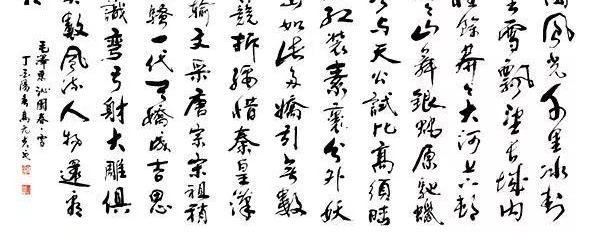 國風光千里冰封
里雪飄望長城内
惟餘莽莽大河上下頓
山舞銀蛇原馳蠟
与天公試比高須晴
红装素裹分外妖
山如此多嬌引無數
競折腰惜秦皇漢
輸文采唐宗宋祖稍
騷一代天驕成吉思
識彎弓射大雕俱
矣數風流人物還看
毛澤東沁園春雪